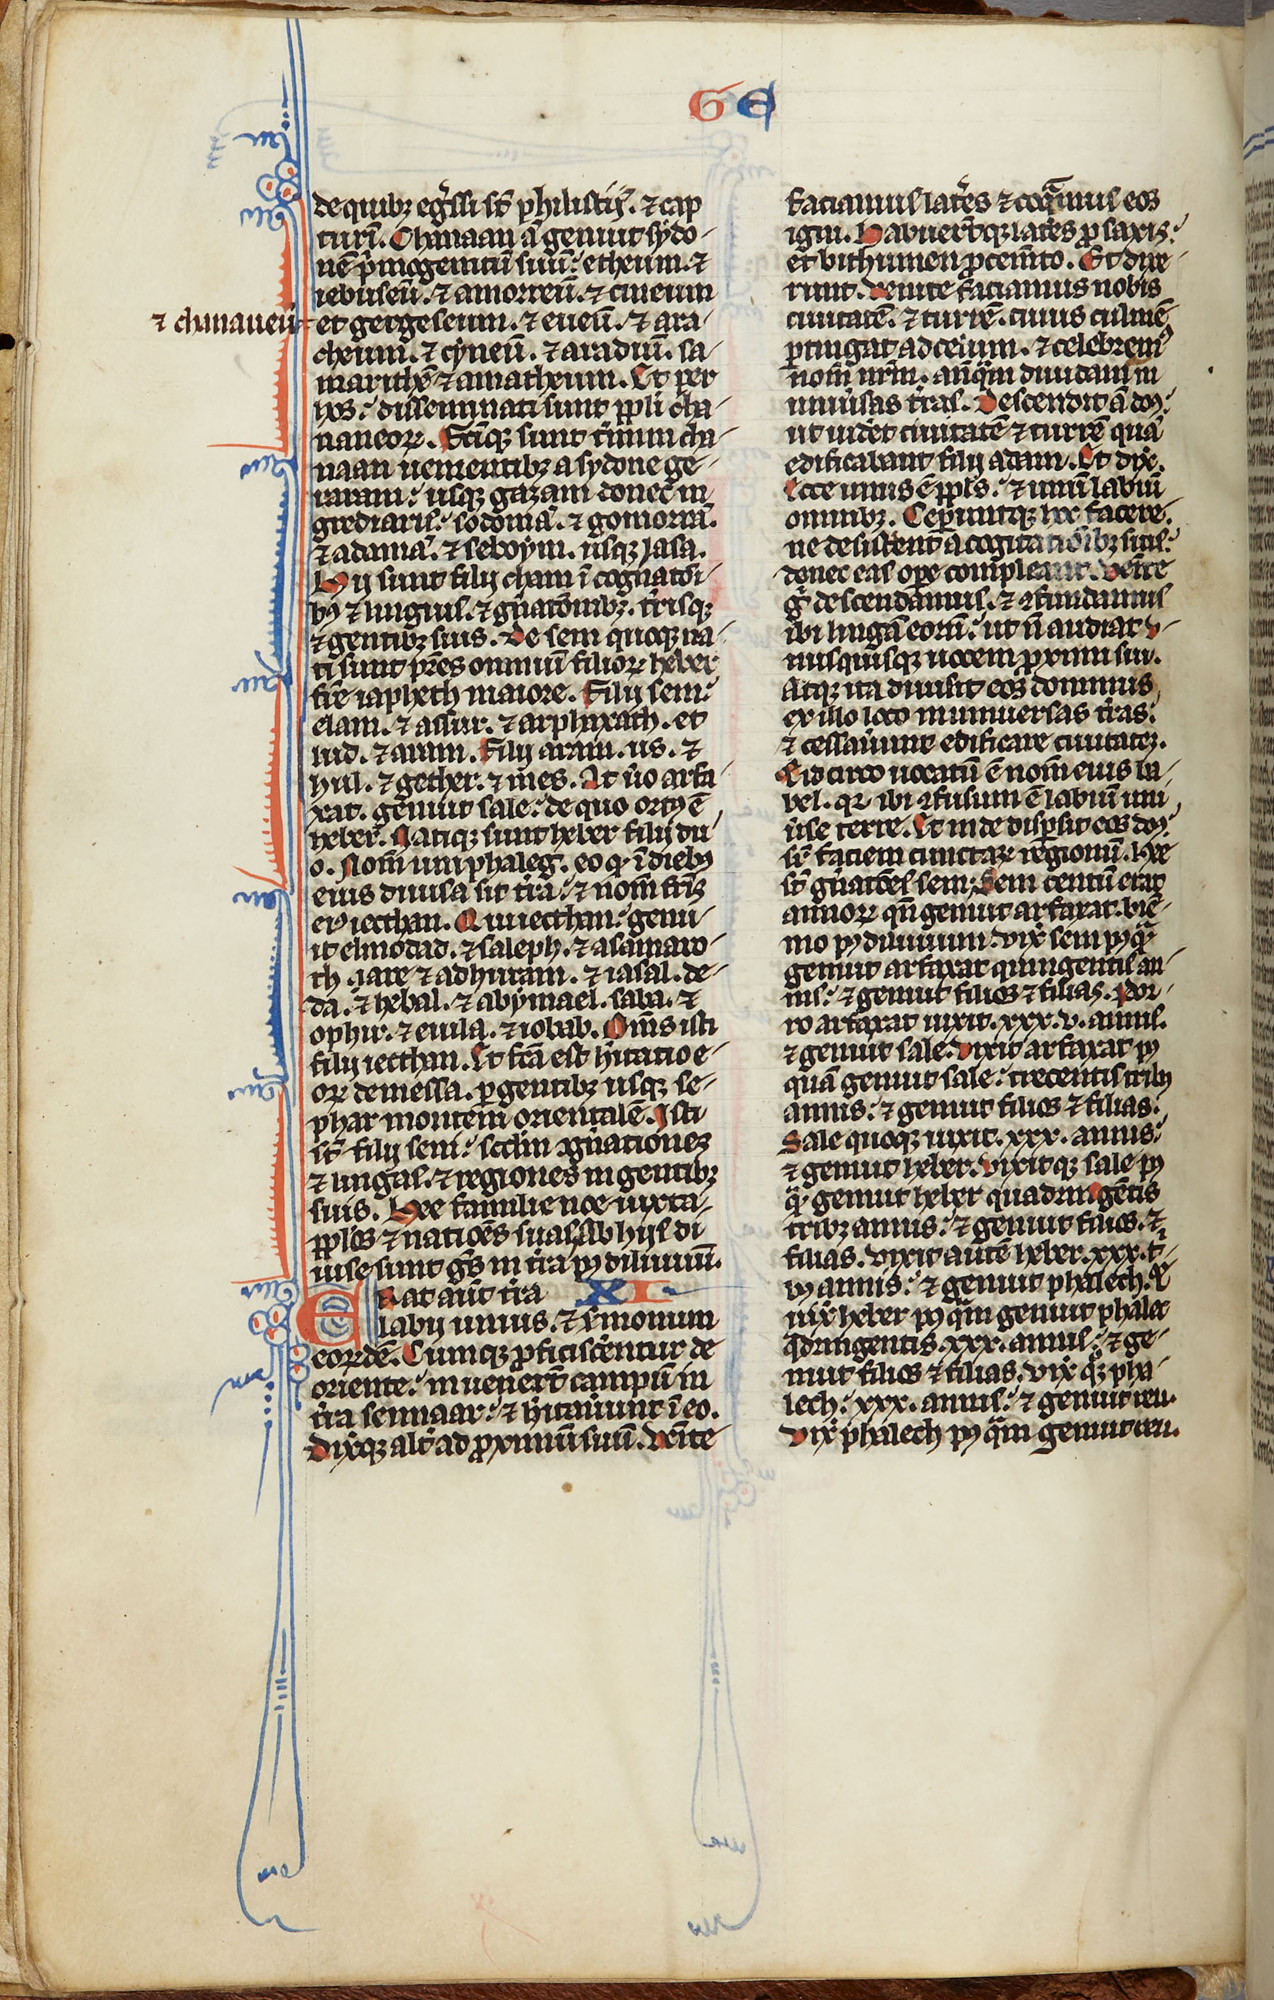 GE
de quibꝫ egr̄ssi st̄ philistij̄. ⁊ cap
turī. Chanaan aū genuit sydo-
nē pͥmogenitū suū: etheum. ⁊
iebuseū. ⁊ amorreū. ⁊ cineum
⁊ chinaueū
et gergeseum. ⁊ eueū. ⁊ ara-
cheum. ⁊ cyneū. ⁊ aradiū. sa-
marithē ⁊ amatheum. Et per
hos: disseminati sunt ppl̄i cha-
naneoꝝ. Factiqꝫ sunt t̄mini cha-
naan uenientibꝫ a sydone ge-
raram: usqꝫ gazam donec in-
grediaris: sodomā. ⁊ gomorrā.
⁊ adamā. ⁊ seboym. usqꝫ lasa.
Hij sunt filij cham ī cognatōi-
bꝰ ⁊ linguis. ⁊ gn̄atōnibꝫ. t̄risqꝫ
⁊ gentibꝫ suis. De sem quoqꝫ na-
ti sunt pr̄es omniū filioꝝ heber
fr̄e iapheth maiore. Filij sem:
elam. ⁊ assur. ⁊ arphaxath. et
lud. ⁊ aram. Filij aram. us. ⁊
hul. ⁊ gether. ⁊ mes. At ūo arfa-
xat. genuit sale: de quo ortꝰ ē
heber. Natiqꝫ sunt heber filij du-
o. Nom̄ uni phaleg. eo qͦ ī diebꝰ
eius diuisa sit t̄ra: ⁊ nom̄ fr̄is
eiꝰ iecthan. Qui iecthan: genu-
it elmodad. ⁊ saleph. ⁊ asamaro-
th. iare ⁊ adhuram. ⁊ iasal. de-
da. ⁊ hebal. ⁊ abymael. saba. ⁊
ophir. ⁊ euila. ⁊ iobab. Om̄s isti
filij iecthan. Et fc̄a est hītatio e-
oꝝ de messa. pgentibꝫ usqꝫ se-
phar montem orientalē. Isti
st̄ filij sem: scd̄m ꝯgn̄ationes
⁊ linguas. ⁊ regiones in gentibꝫ
suis. Hee familie noe iuxta
ppl̄os ⁊ natiōes suas. Ab hijs di-
uise sunt gn̄s in t̄ra pꝰ diluuiū.
Erat aūt t̄ra XI
labij unius. ⁊ s̄monum
eorꝝdē. Cumqꝫ pficiscētur de
oriente: inuener̄t campū in
t̄ra sennaar: ⁊ hītau̅unt ī eo.
Dixꝗꝫ alt̄ ad ꝓximū suū. Venite
faciamus lat̄es ⁊ coqͣmus eos
igni. Habuer̄tqꝫ lat̄es ꝓ saxis:
et bithumen ꝓ cem̄to. Et dixe-
runt. Venite faciamus nobis
ciuitatē. ⁊ turrē. cuius culmē
ptingat ad celum. ⁊ celebremꝰ
nom̄ nr̄m. anͣqͣm diuidam̄ in
uniūsas t̄ras. Descendit aū dn̄s:
ut uidēt ciuitatē ⁊ turrē quā
edificabant filij adam. Et dix̄.
Ecce unus ē ppl̄s: ⁊ unū labiū
omnibꝫ. Cep̄untqꝫ hoc facere.
ne desistent a cogitationibꝫ suis:
donec eas ope compleant. Venite
gͦ descendamus. ⁊ ꝯfundamus
ibi linguā eorū: ut n̄ audiat u-
nusquisqꝫ uocem ꝓximi sui.
Atqꝫ ita diuisit eos dominus
ex illo loco in uniuersas t̄ras:
⁊ cessau̅unt edificare ciuitatē.
Et idcirco uocatū ē nom̄ eius ba-
bel. qꝛ ibi ꝯfusum ē labiū uni-
ūse terre. Et inde dispsit eos dn̄s:
sr̄ faciem cunctaꝝ regionū. Hee
st̄ gn̄atōes sem: Sem centū erat
annoꝝ qn̄ genuit arfaxat. biē-
nio pꝰ diluuium. vix̄ sem pꝰ qͣm
genuit arfaxat quingentis an-
nis: ⁊ genuit filios ⁊ filias. Por-
ro arfaxat uixit. xxx. v. annis.
⁊ genuit sale. vixit arfaxat pꝰ
quā genuit sale: trecentis tribꝰ
annis: ⁊ genuit filios ⁊ filias:
Sale quoqꝫ uixit. xxx. annis:
⁊ genuit heber. vixitqꝫ sale pꝰ
qͣ genuit heber quadringētis
tribꝫ annis: ⁊ genuit filios. ⁊
filias. vixit autē heber. xxx. t̄-
bꝰ annis: ⁊ genuit phalech. ⁊
uix̄ heber pꝰ qͣm genuit phalec
qͣdringentis. xxx. annis: ⁊ ge-
nuit filios ⁊ filias. vix̄ qͦꝫ pha-
lech: xxx. annis: ⁊ genuit reu.
vix̄ phalech pꝰ qͣm genuit reu.